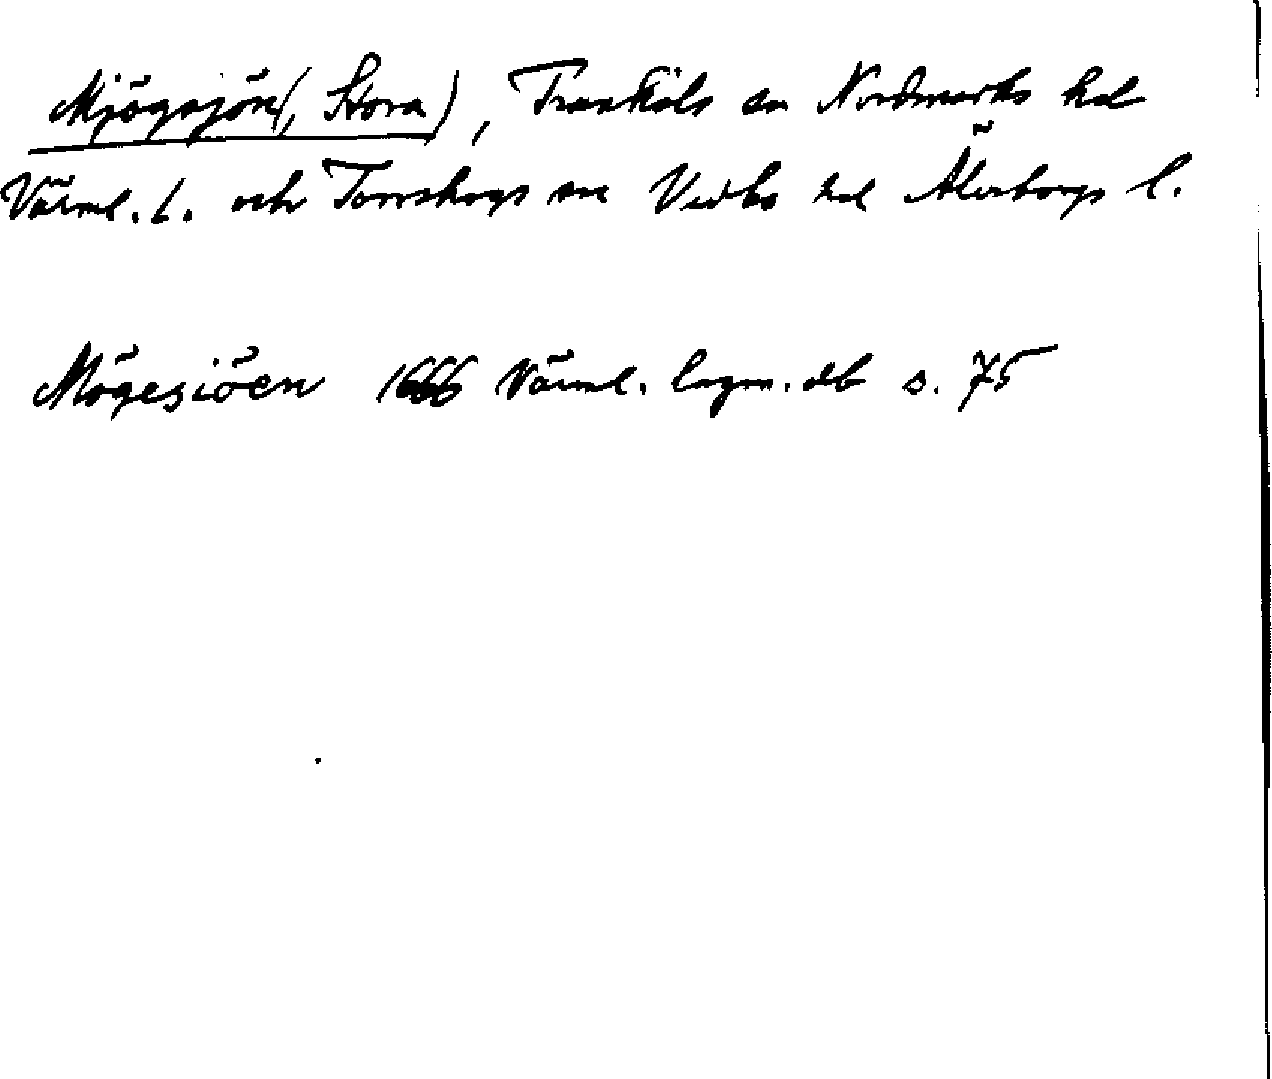 Mjögsjön (, Stora), Trankils sn Nordmarks hd
Värml. l. och Torrskogs sn Vedbo hd Älvsborgs l.
Mögesiöen 1666 Värml. lagm. db s. 75